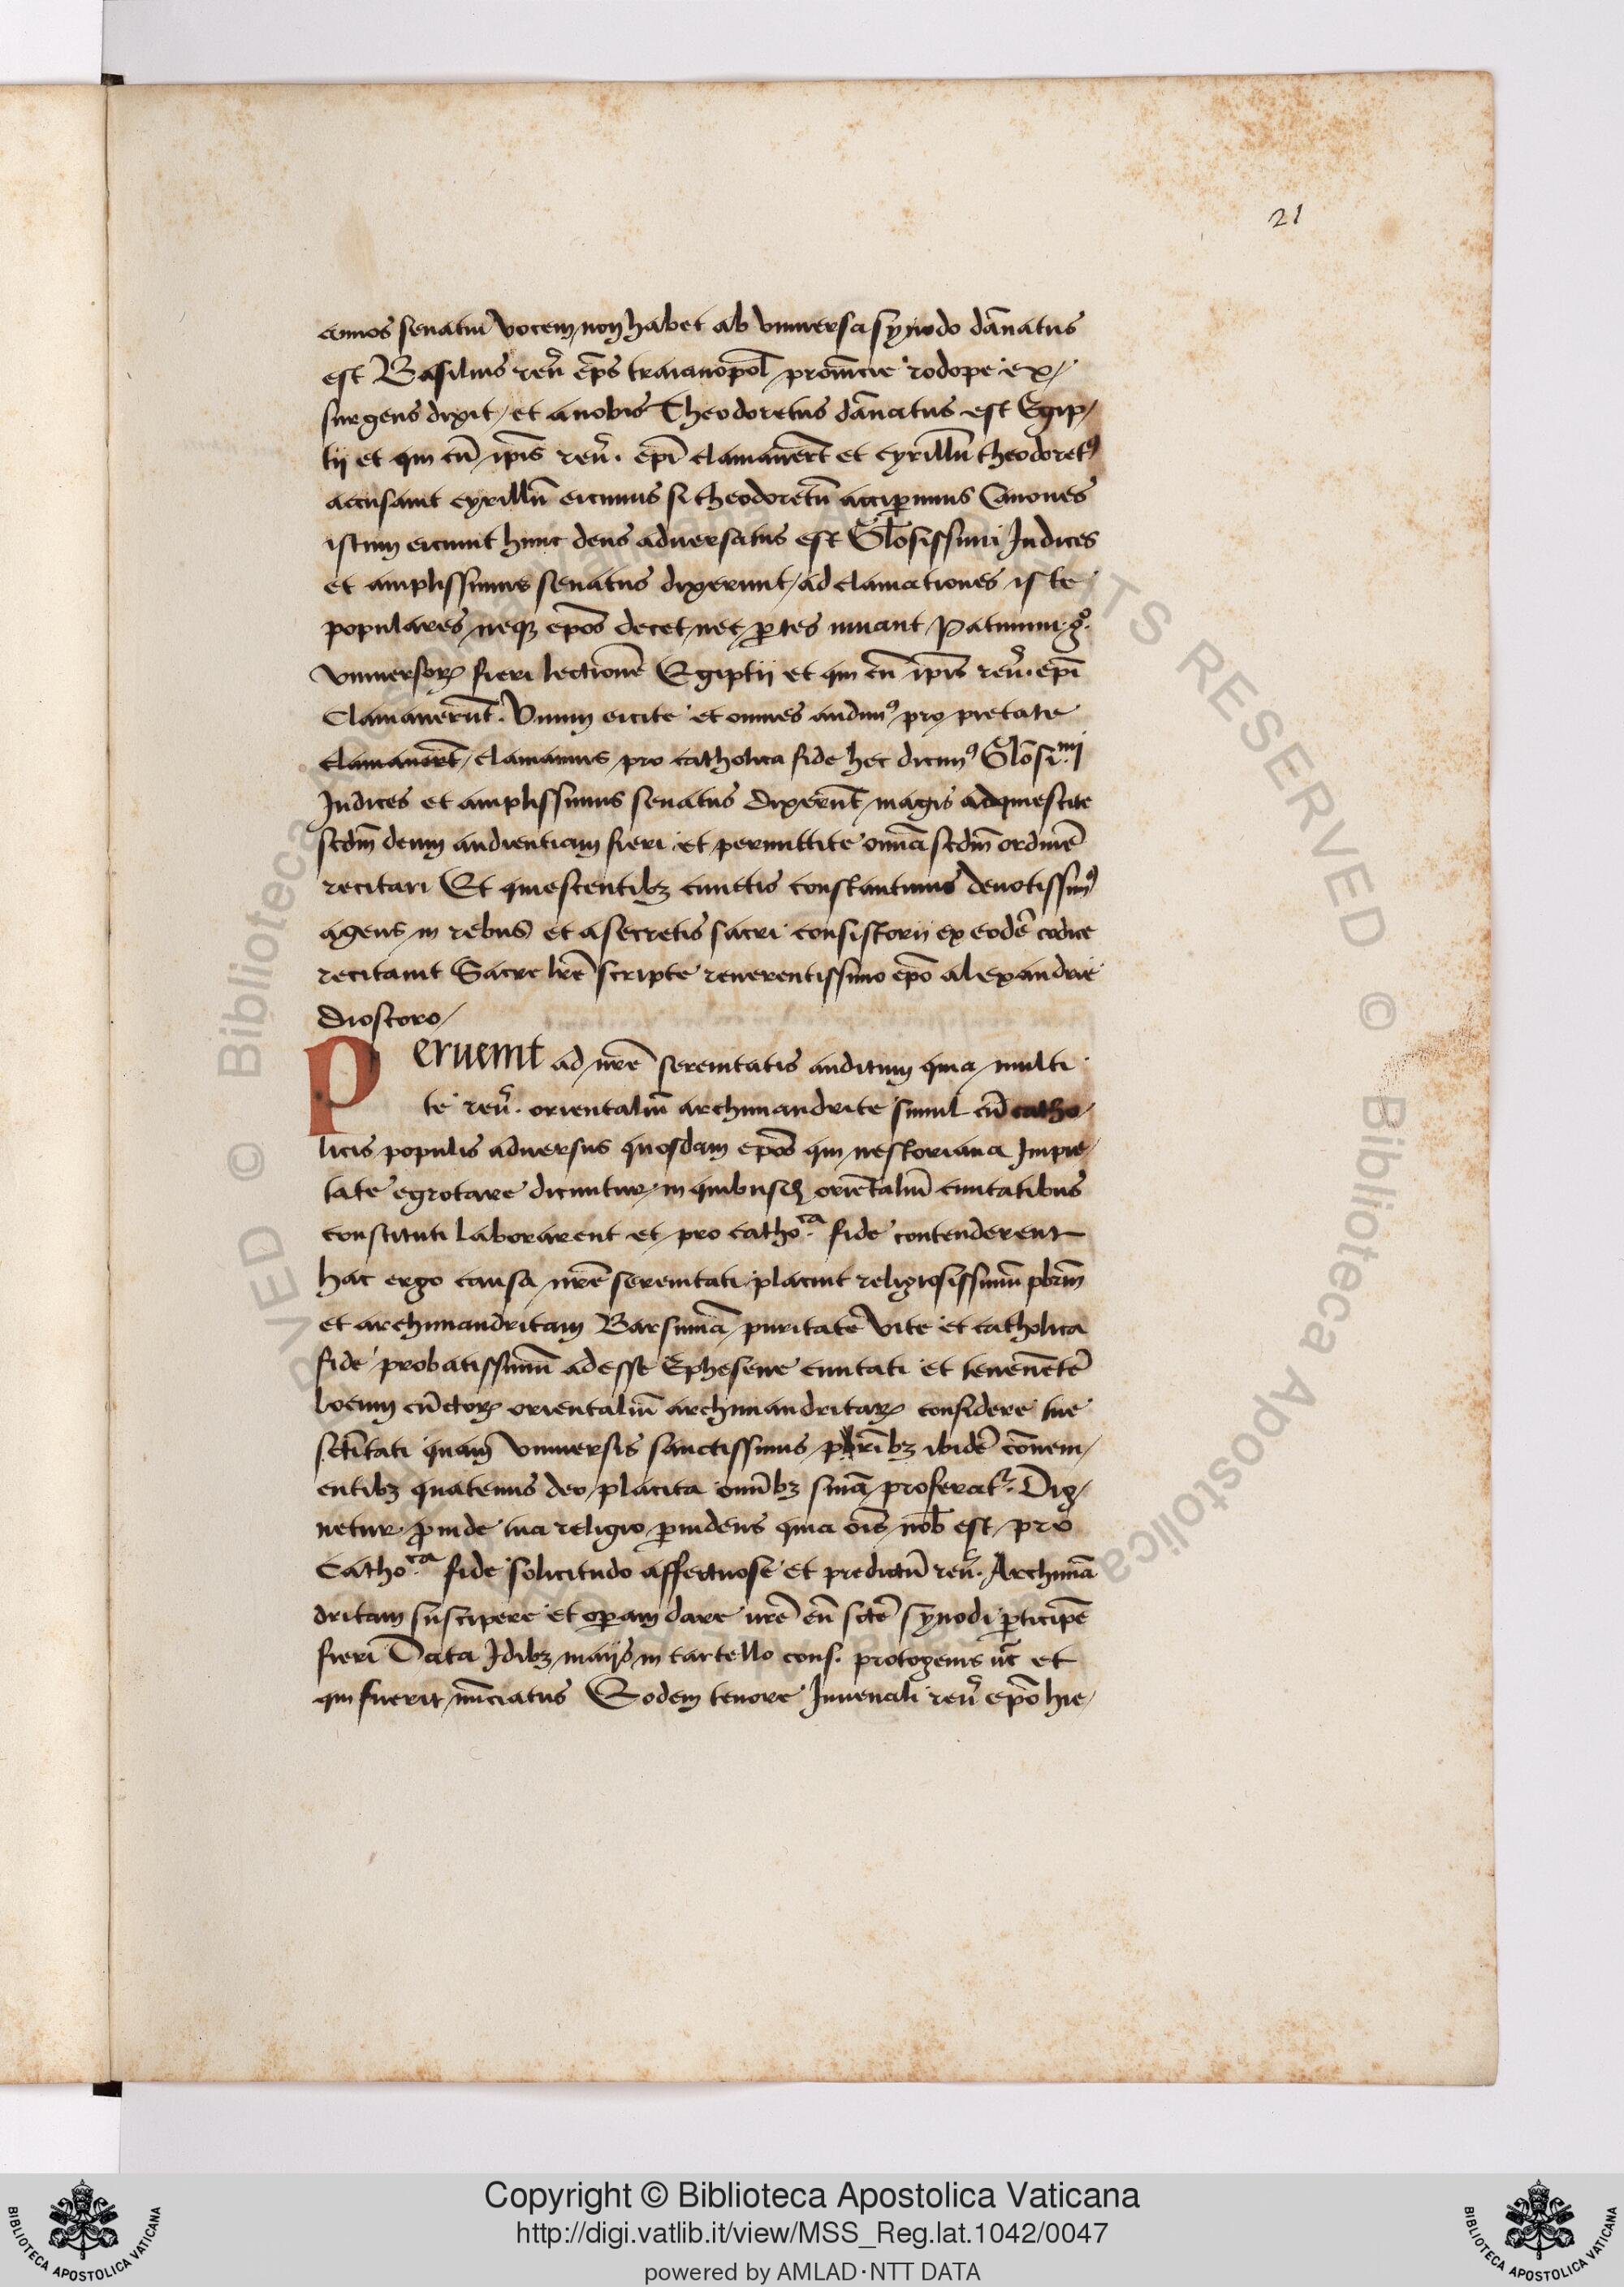 21
annos senatui vocem non habet ab vniuersa synodo dānatus
est Basilius reu̅ ep̅s traianopol̅ prouīcie rodope ex/
surgens dixit / et a nobis Theodoretus dānatus est Egip/
tij et qui cū ip̅is reu̅. ep̅i clamauer̅t et cyrillū theodoretꝰ
accusauit cyrillū eicimus si theodoretū accip̲imus Canones
istum eiciunt hunc deus aduersatus est Gl̅osissimi Judices
et amplissimus senatus dixerunt / ad clamationes iste
populares neqꝫ ep̅os decet nec p̲tes iuuant Patimini gͦ.
vniuersoꝝ fieri lectionē Egiptij et qui cū ip̅is reu̅. ep̅i
Clamauerūt. Vnum eicite et omnes audimꝰ pro pietate
clamauer̅t / clamamus pro catholica fide hec dicimꝰ Gl̅osi.mi
Judices et amplissimus senatus dixerūt magis adquiescite
scd̅m deum audientiam fieri et permittite om̅ia scd̅m ordinē
recitari Et quiescentibꝫ cunctis constantinus deuotissimꝰ
agens in rebus et a secretis sacri consistorij ex eodē codice
recitauit Sacre lr̅e scripte reuerentissimo ep̅o alexandrie
dioscoro /
Peruenit ad nr̅e serenitatis auditum quia multi
te reu̅. orientaliū archimandrite simul cū catho/
licis populis aduersus quosdam ep̅os qui nestoriana Impie/
tate egrotare dicuntur in quibusdā oriētaliū ciuitatibus
constituti laborarent et pro catho.ca fide contenderent
hac ergo causa nr̅e serenitati placuit religiosissimū pb̅rm
et archimandritam Barsumā puritate vite et catholica
fide probatissimū adesse Ephesene ciuitati et tenentē
locum cūctoꝝ orientaliū archimandritaꝝ considere tue
sct̅itati quam vniuersis sanctissimis pr̅ibꝫ ibidē cōueni/
entibꝫ quatenus deo placita om̅ibꝫ sn̅iā proferat᷑. Dig/
netur p̲inde tua religio p̲uidens quia ois̅ nob̅ est pro
Catho.ca fide solicitudo affectuose et predictū reu̅. Archimā
dritam suscipere et op̲am dare vr̅e eū scē synodi p̲ticipē
fieri Data Idibꝫ maijs in cartello cons. protogenis uc̅ et
qui fuerit nūciatus Eodem tenore Juuenali reu̅ ep̅o hie/
Copyright © Biblioteca Apostolica Vaticana
http://digi.vatlib.it/view/MSS_Reg.lat.1042/0047
powered by AMLAD·NTT DATA